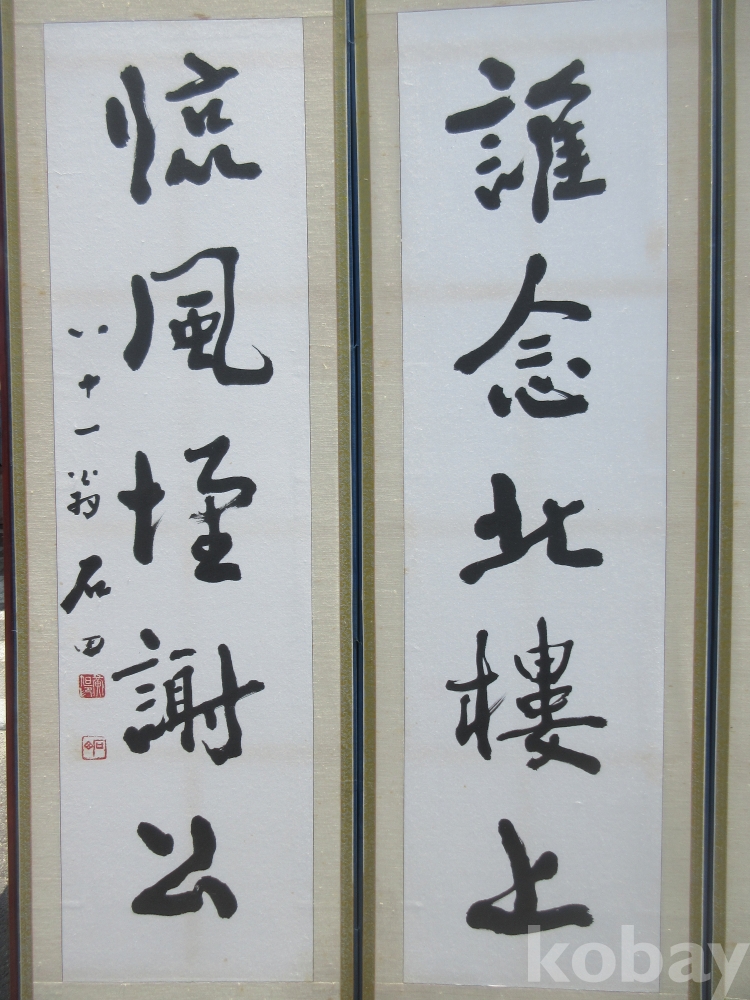 誰念北樓上
臨風懐謝公
八十一翁石田
kobay